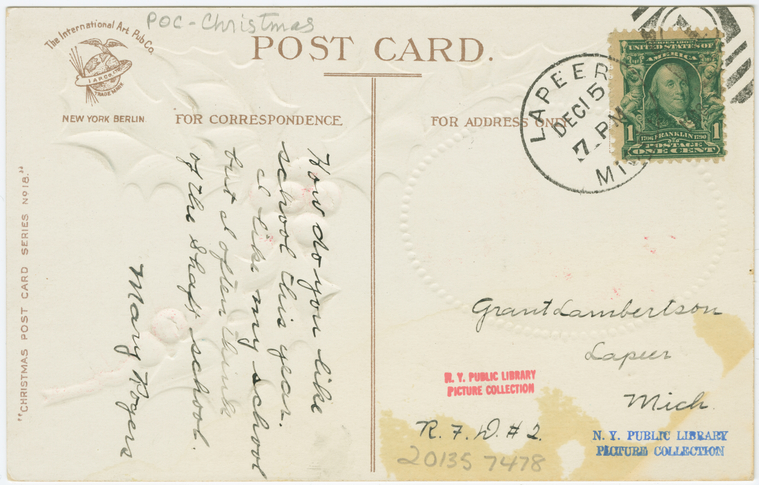 POC-Christmas
The International Art Pub Co.
TRADE MARK
NEW YORK BERLIN
POST CARD.
FOR CORRESPONDENCE
FOR ADDRESS ONLY
LAPEER
DEC 15
7 PM
MI
SERIES 1902
UNITED STATES OF
AMERICA
1706 FRANKLIN 1790
1 POSTAGE 1
ONE CENT
"CHRISTMAS POST CARD SERIES No 18."
How do you like
school this year.
I like my school
but I often think
of the Shaft school.
Mary Rogers
Grant Lambertson
Lapeer
Mich.
R. F. D. # 2.
N. Y. PUBLIC LIBRARY
PICTURE COLLECTION
N. Y. PUBLIC LIBRARY
PICTURE COLLECTION
20135 7478